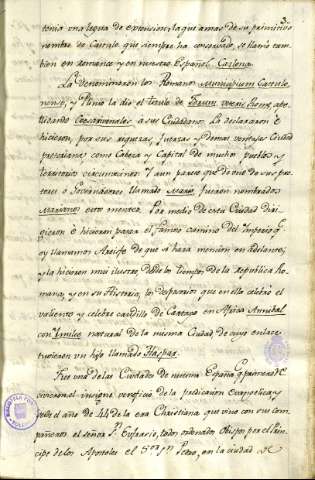 3.
tenia una legua de extension, la que amas de su primitivo
nombre de Castulo que siempre ha conservado, se llamó tam-
bien en romance y en nuestro Español Cazlona.
La denominaron los Romanos Municipium Castulo-
nense, y Plinio la dio el titulo de
apellidando Caesariveniales a sus Ciudadanos. La declararon è
hicieron, por sus riquezas, fuerzas y demas ventajas Ciudad
como Cabeza y Capital de muchos pueblos y
territorios circunvecinos. Y aun parece que de uno de sus pre-
tores o Governadores llamado Mario, fueron nombrados
Marianos estos montes. Por medio de esta Ciudad diri-
gieron ò hicieron pasar el famoso camino del Imperio q.
oy llamamos Arrecife de que se hara mencion en adelante;
y la hicieron mui ilustre, desde los tiempos de la republica Ro-
mana, y en su Historia, los desposorios que en ella celebró el
valiente y celebre caudillo de Cartago en Africa Annibal
con Imilce natural de la misma Ciudad, de cuyo enlace
tuvieron un hijo llamado Haspar.
Fue una de las Ciudades de nuestra España q. parece
con el insigne veneficio de la predicacion Evangelica, y
el año de 44 de la era Christiana que vino con sus com-
pañeros el señor S.n Eufrasio, todos ordenados Obispos por el Prin-
cipe de los Apostoles el S.or S.n Pedro, en la ciudad de